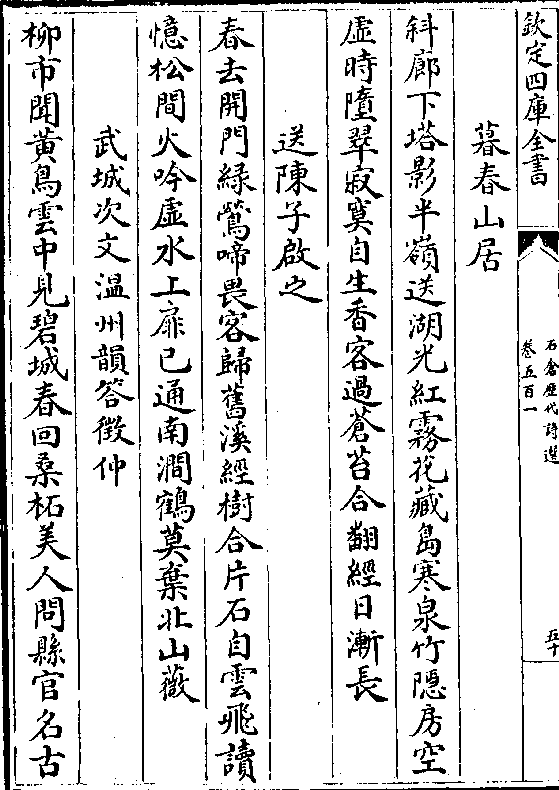 欽定四庫全書
石倉歷代詩選
卷五百一
五十
暮春山居
斜廊下塔影半嶺送湖光紅霧花藏島寒泉竹隱房空
虛時墮翠寂寞自生香客過蒼苔合翻經日漸長
送陳子啟之
春去開門綠鶯啼畏客歸舊溪經樹合片石自雲飛讀
憶松間火吟虛水上扉已通南澗鶴莫棄北山薇
武城次文温州韻答徵仲
柳市聞黃鳥雲中見碧城春回桑柘美人問縣官名古